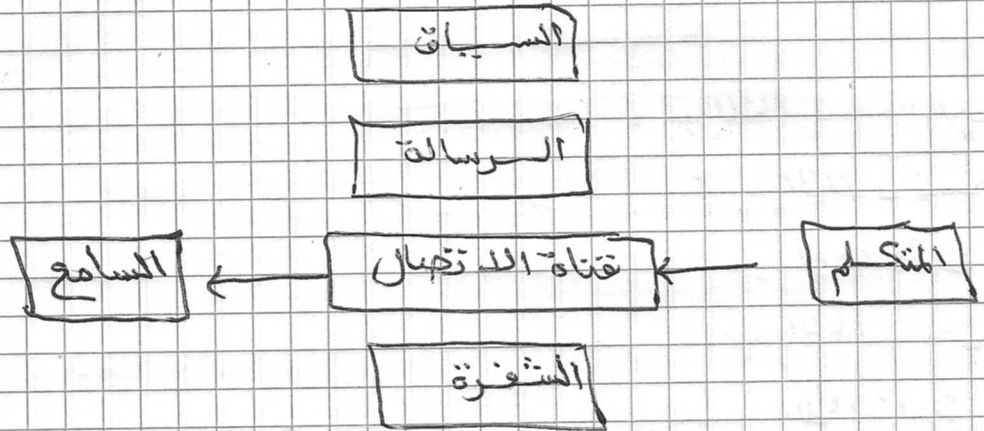 السياق
الرسالة
المتكلم
قناة الاتصال
السامع
الشفرة